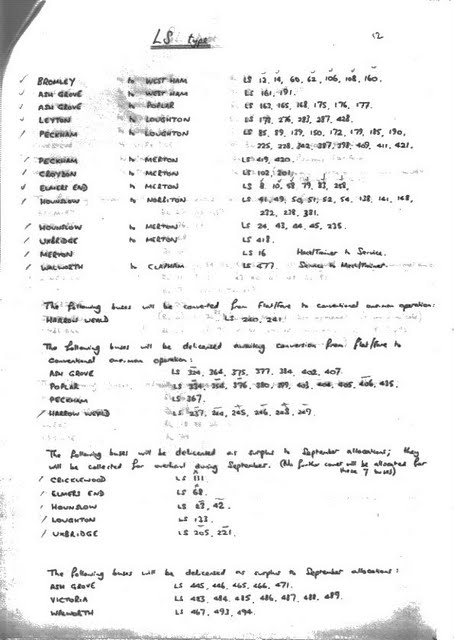 LS type
12
BROMLEY to WEST HAM LS 12, 14, 60, 62, 106, 108, 160.
ASH GROVE to WEST HAM LS 161, 191.
ASH GROVE to POPLAR LS 163, 165, 168, 175, 176, 177.
LEYTON to LOUGHTON LS 276, 287, 428.
PECKHAM to LOUGHTON LS 85, 89, 139, 150, 172, 179, 185, 190,
225, 228, 409, 411, 421.
PECKHAM to MERTON LS 419, 420.
CROYDON to MERTON LS 102, 201.
ELMERS END to MERTON LS 8, 10, 58, 79, 83, 258.
HOUNSLOW to NORBITON LS 41, 49, 50, 51, 52, 54, 138, 141, 148,
232, 238, 381.
HOUNSLOW to MERTON LS 24, 43, 44, 45, 235.
UXBRIDGE to MERTON LS 418.
MERTON LS 16 to Service.
WALWORTH to CLAPHAM LS 477. Service to
The following buses will be converted from flat/fare to conventional one-man operation:
HARROW WEALD LS 240, 241.
The following buses will be delicensed awaiting conversion from flat/fare to
conventional one-man operation:
ASH GROVE LS 324, 364, 375, 377, 384, 402, 407.
POPLAR LS 334, 356, 376, 380, 399, 403, 404, 405, 406, 435.
PECKHAM LS 367.
HARROW WEALD LS 237, 244, 245, 246, 248, 249.
The following buses will be delicensed as surplus to September allocations; they
will be collected for overhaul during September. (No further cover will be allocated for
these 7 buses)
CRICKLEWOOD LS 111
ELMERS END LS 68.
HOUNSLOW LS 23, 42.
LOUGHTON LS 133.
UXBRIDGE LS 205, 221.
The following buses will be delicensed as surplus to September allocations:
ASH GROVE LS 445, 446, 465, 466, 471.
VICTORIA LS 483, 484, 485, 486, 487, 488, 489.
WALWORTH LS 467, 493, 494.